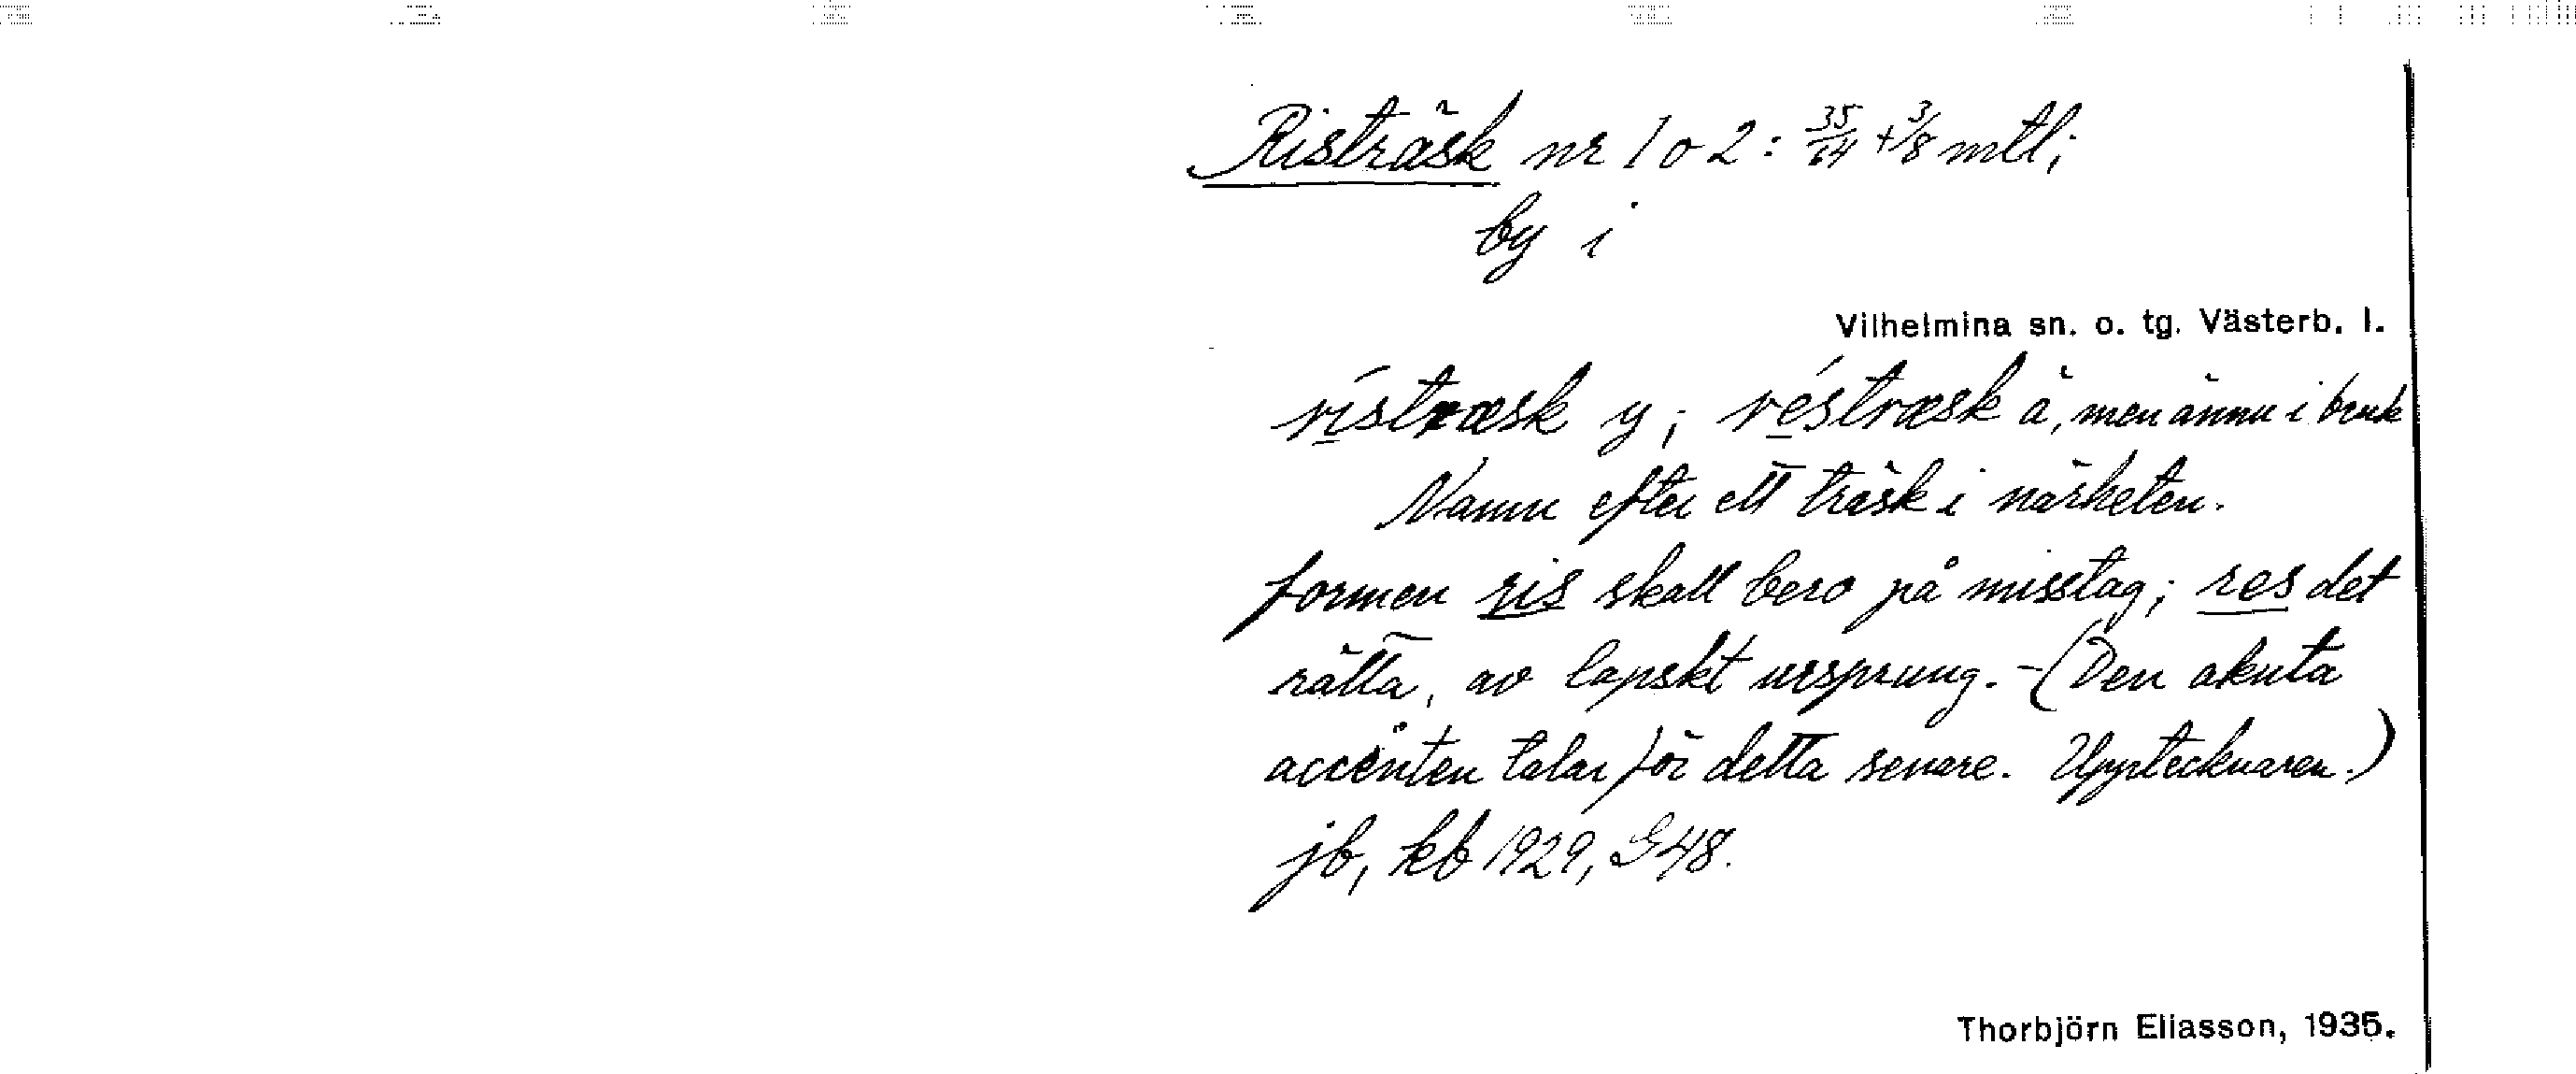 Risträsk nr 1 o 2: 35/64 + 3/8 mtl;
by i
Vilhelmina sn. o. tg. Västerb. l.
rístræsk y; réstræsk ä, men ännu i bruk
Namn efter ett träsk i närheten.
formen ris skall bero på misstag; res det
rätta, av lapskt ursprung. - (Den akuta
accenten talar för detta senare. Upptecknaren.)
jb, kb 1929, G48.
Thorbjörn Eliasson, 1935.